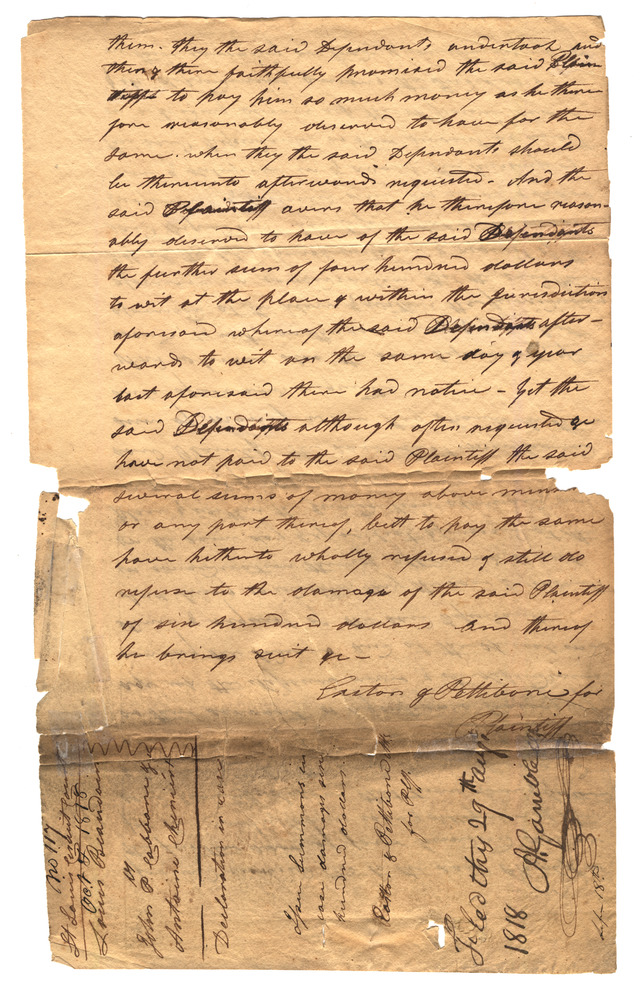 them. they the said Dependants undertook and
then & there faithfully promised the said Plain
tiff to pay him so much money as he there
fore reasonably deserved to have for the
same. when they the said Dependants should
be thereunto afterwards requested - And the
said Plaintiff avers that he therefore reason-
ably deserved to have of the said Defendants
the further sum of four hundred dollars
to wit at the place & within the Jurisdiction
aforesaid whereof the said Defendants after-
wards to wit on the same day & year
last aforesaid there had notice - Yet the
said Defendants although often requested &c
have not paid to the said Plaintiff the said
several sums of money above
or any part thereof, but to pay the same
have hitherto wholly refused & still do
refuse to the damage of the said Plaintiff
of six hundred dollars and thereof
he brings suit &c -
Easton & Pettibone for
Plaintiff
No 117
St Louis Circuit
Oct 1818
Louis
vs
John P. &
Antoine
Declaration in case
Issue summons in
case damage six
hundred dollars.
Easton & Pettibone
for Plff.
Filed this 29th Augt
1818
A Gamble